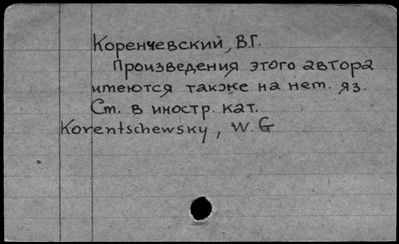 Коренчевский, В.Г.
Произведения этого автора
имеются также на нем. яз.
См. в иностр. кат.
Korentschewsky, W. G